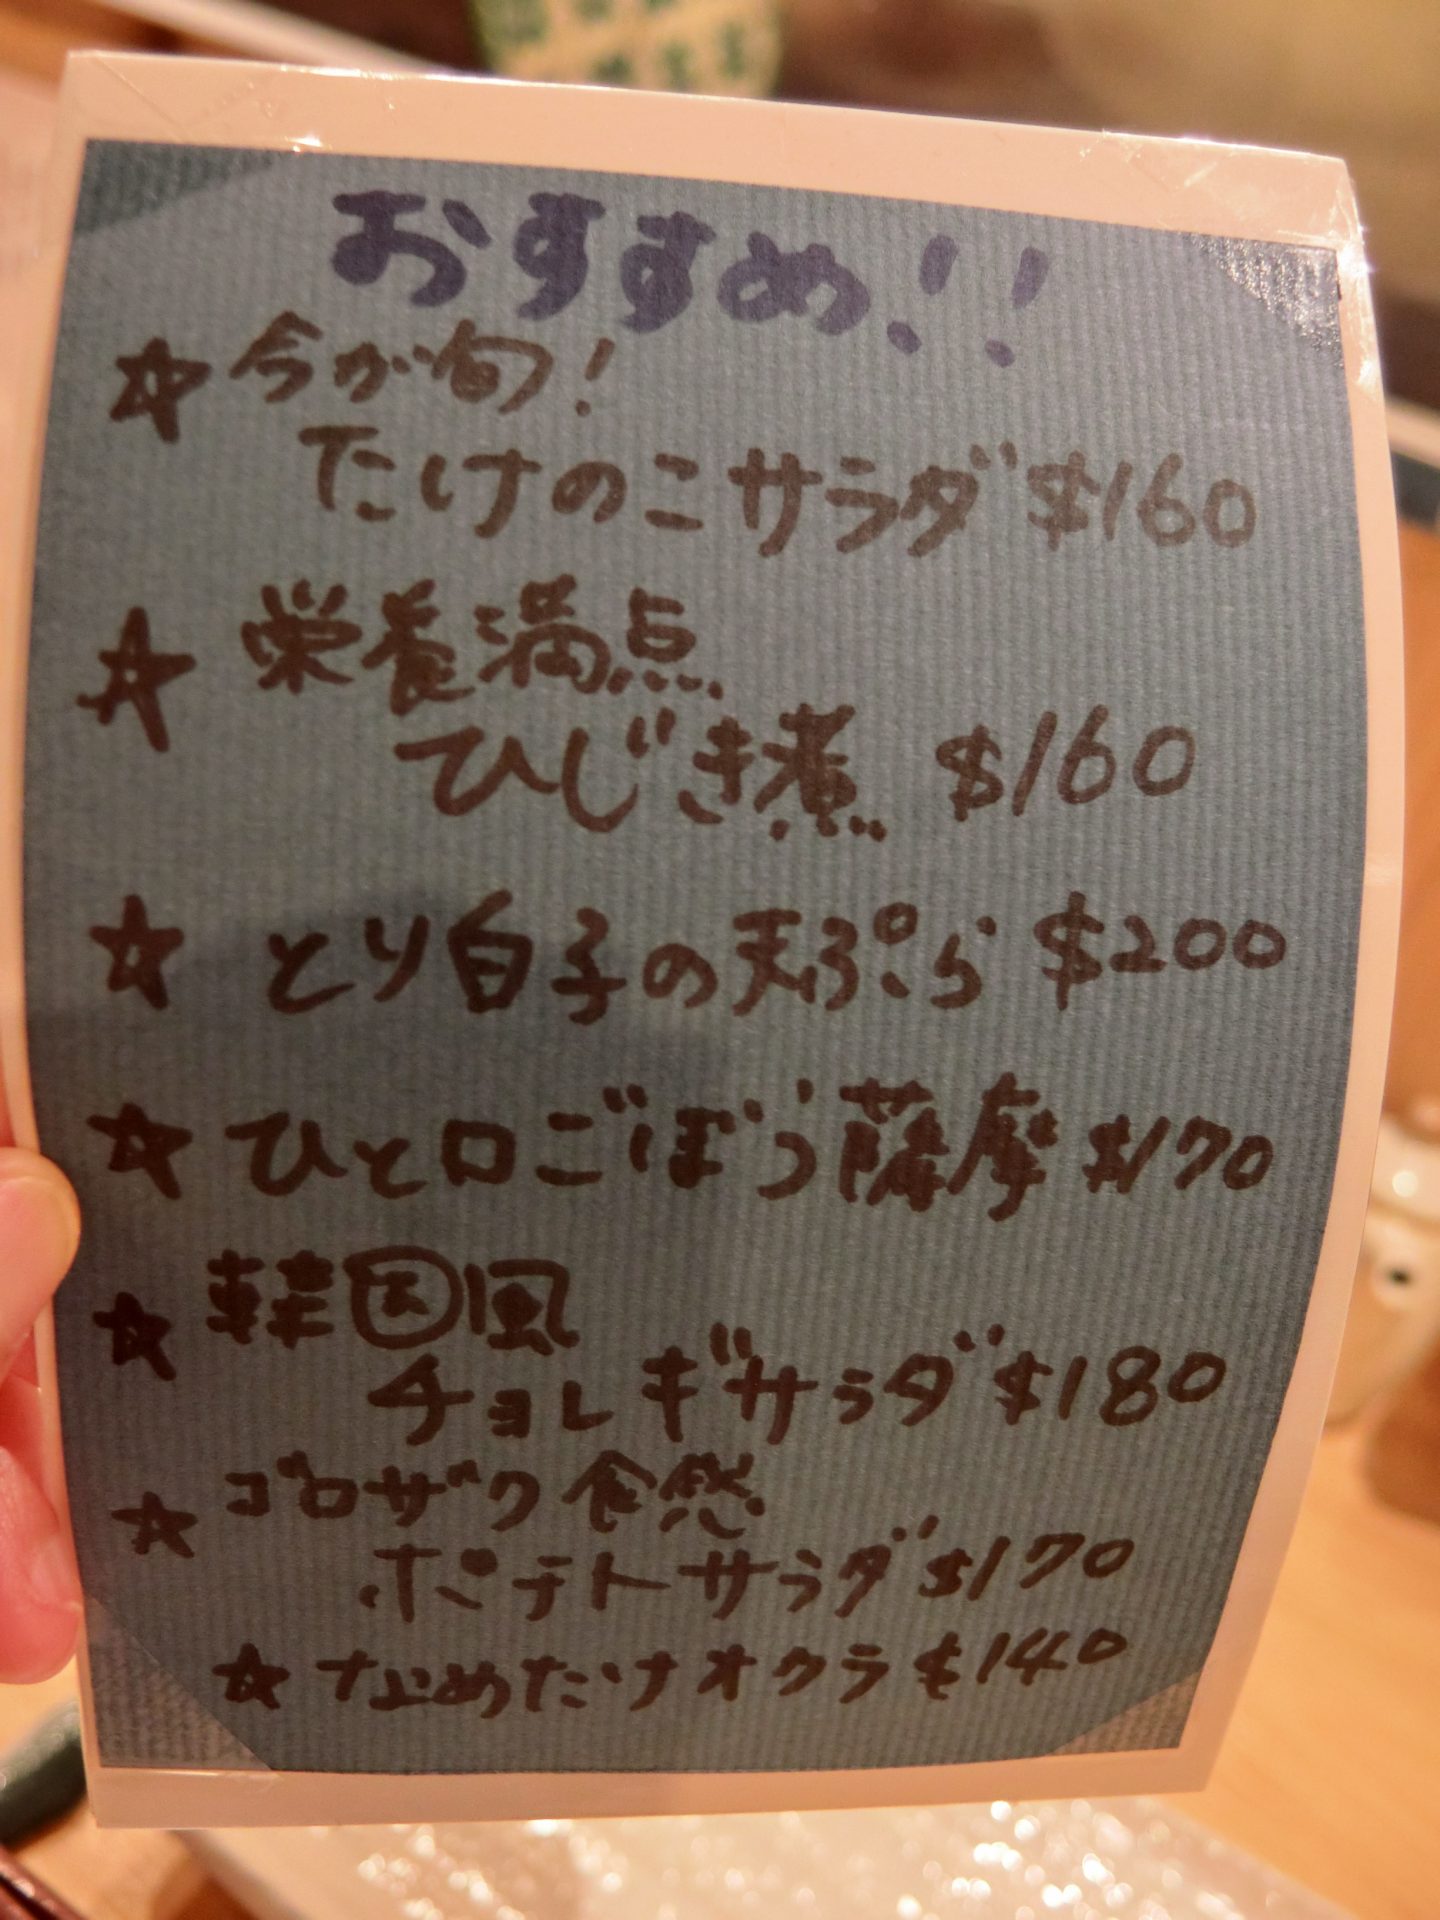 おすすめ!!
☆今が旬!
たけのこサラダ $160
☆栄養満点
ひじき煮 $160
☆とり白子の天ぷら $200
☆ひと口ごぼう薩摩 $170
☆韓国風
チョレギサラダ $180
☆ゴロザク食感
ポテトサラダ $170
☆なめたけオクラ $140